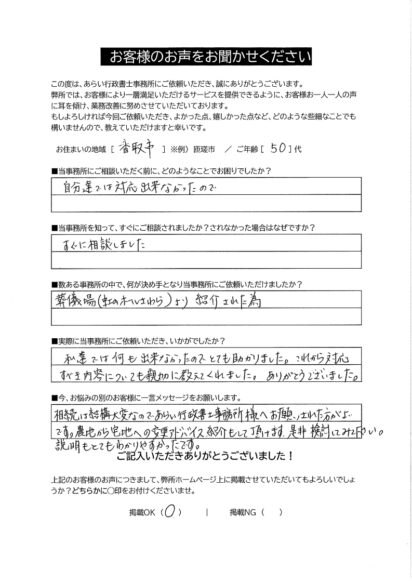 お客様のお声をお聞かせください
この度は、あらい行政書士事務所にご依頼いただき、誠にありがとうございます。
弊所では、お客様により一層満足いただけるサービスを提供できるように、お客様お一人一人の声
に耳を傾け、業務改善に努めさせていただいております。
もしよろしければ今回ご依頼いただき、よかった点、嬉しかった点など、どのような些細なことでも
構いませんので、教えていただけますと幸いです。
お住まいの地域 [ 香取市 ] ※例）匝瑳市 ／ ご年齢 [ 50 ] 代
■当事務所にご相談いただく前に、どのようなことでお困りでしたか？
自分達では対応出来なかったので
■当事務所を知って、すぐにご相談されましたか？されなかった場合はなぜですか？
すぐに相談しました
■数ある事務所の中で、何が決め手となり当事務所にご依頼いただけましたか？
葬儀場(虹のホールさわら)より紹介された為
■実際に当事務所にご依頼いただき、いかがでしたか？
私達では何も出来なかったのでとても助かりました。これから対応
すべき内容についても親切に教えてくれました。ありがとうございました。
■今、お悩みの別のお客様に一言メッセージをお願いします。
相続は結構大変なのであらい行政書士事務所様へお願いされた方がよい
です。農地から宅地への変更アドバイス 紹介もして頂けます 是非 検討してみて下さい。
説明もとてもわかりやすかったです。
ご記入いただきありがとうございました！
上記のお客様のお声につきまして、弊所ホームページ上に掲載させていただいてもよろしいでしょ
うか？どちらかに〇印をお付けくださいませ。
掲載OK（ 〇 ） | 掲載NG（ ）